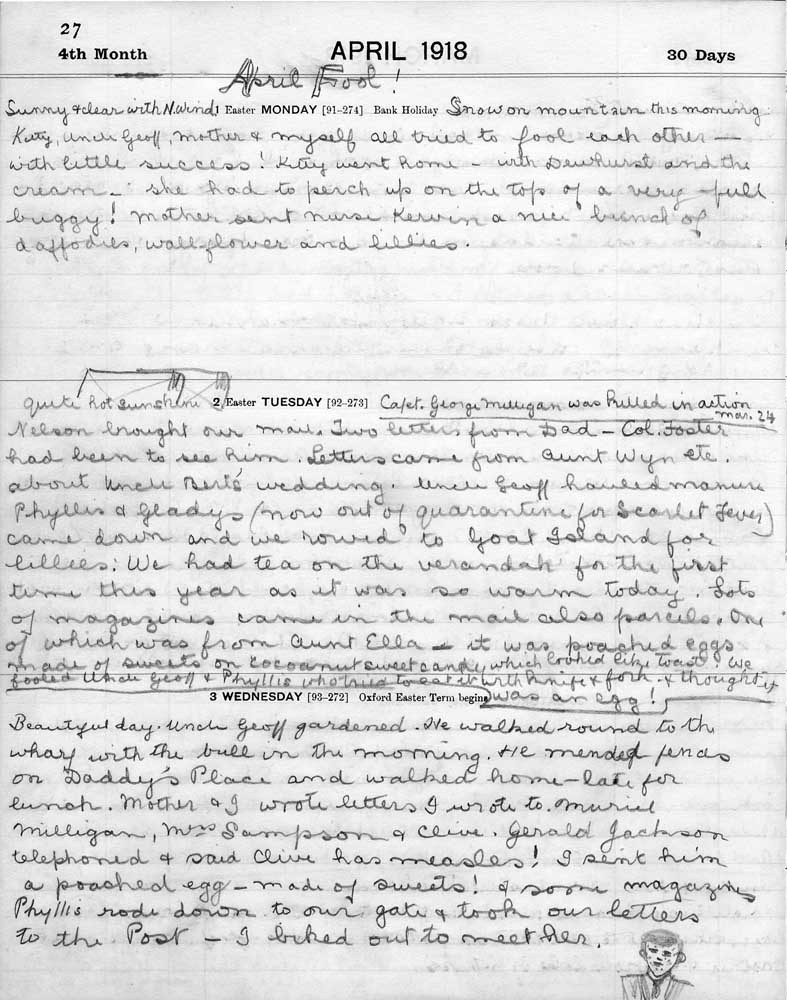 27
4th Month APRIL 1918 30 Days
April Fool!
Sunny & clear with N. Wind 1 Easter MONDAY [91-274] Bank Holiday Snow on mountain this morning.
Katy, Uncle Geoff, Mother & myself all tried to fool each other —
with little success! Katy went home - with Dewhurst and the
cream - she had to perch up on the top of a very full
buggy! Mother sent nurse Kerwin a nice bunch of
daffodies, wallflower and lillies.
quite hot sunshine 2 Easter TUESDAY [92-273] Capt. George Milligan was killed in action
Mar. 24
Nelson brought our mail. Two letters from Dad - Col. Foster
had been to see him. Letters came from Aunt Wyn etc.
about Uncle Bert's wedding. Uncle Geoff hauled manure
Phyllis & Gladys (now out of quarantine for Scarlet Fever)
came down and we rowed to Goat Island for
lillies. We had tea on the verandah for the first
time this year as it was so warm today. Lots
of magazines came in the mail also parcels. One
of which was from Aunt Ella - it was poached eggs
made of sweets on cocoanut sweet candy, which looked like toast! We
fooled Uncle Geoff & Phyllis who tried to eat it with knife & fork. & thought it
3 WEDNESDAY [93-272] Oxford Easter Term begins was an egg!
Beautyful day. Uncle Geoff gardened. He walked round to th
wharf with the bull in the morning. He mended fences
on Daddy's Place and walked home - late for
lunch. Mother & I wrote letters I wrote to Muriel
Milligan, Mrs Sampson & Clive. Gerald Jackson
telephoned & said Clive has measles! I sent him
a poached egg - made of sweets! & some magazines
Phyllis rode down to our gate & took our letters
to the Post - I biked out to meet her.